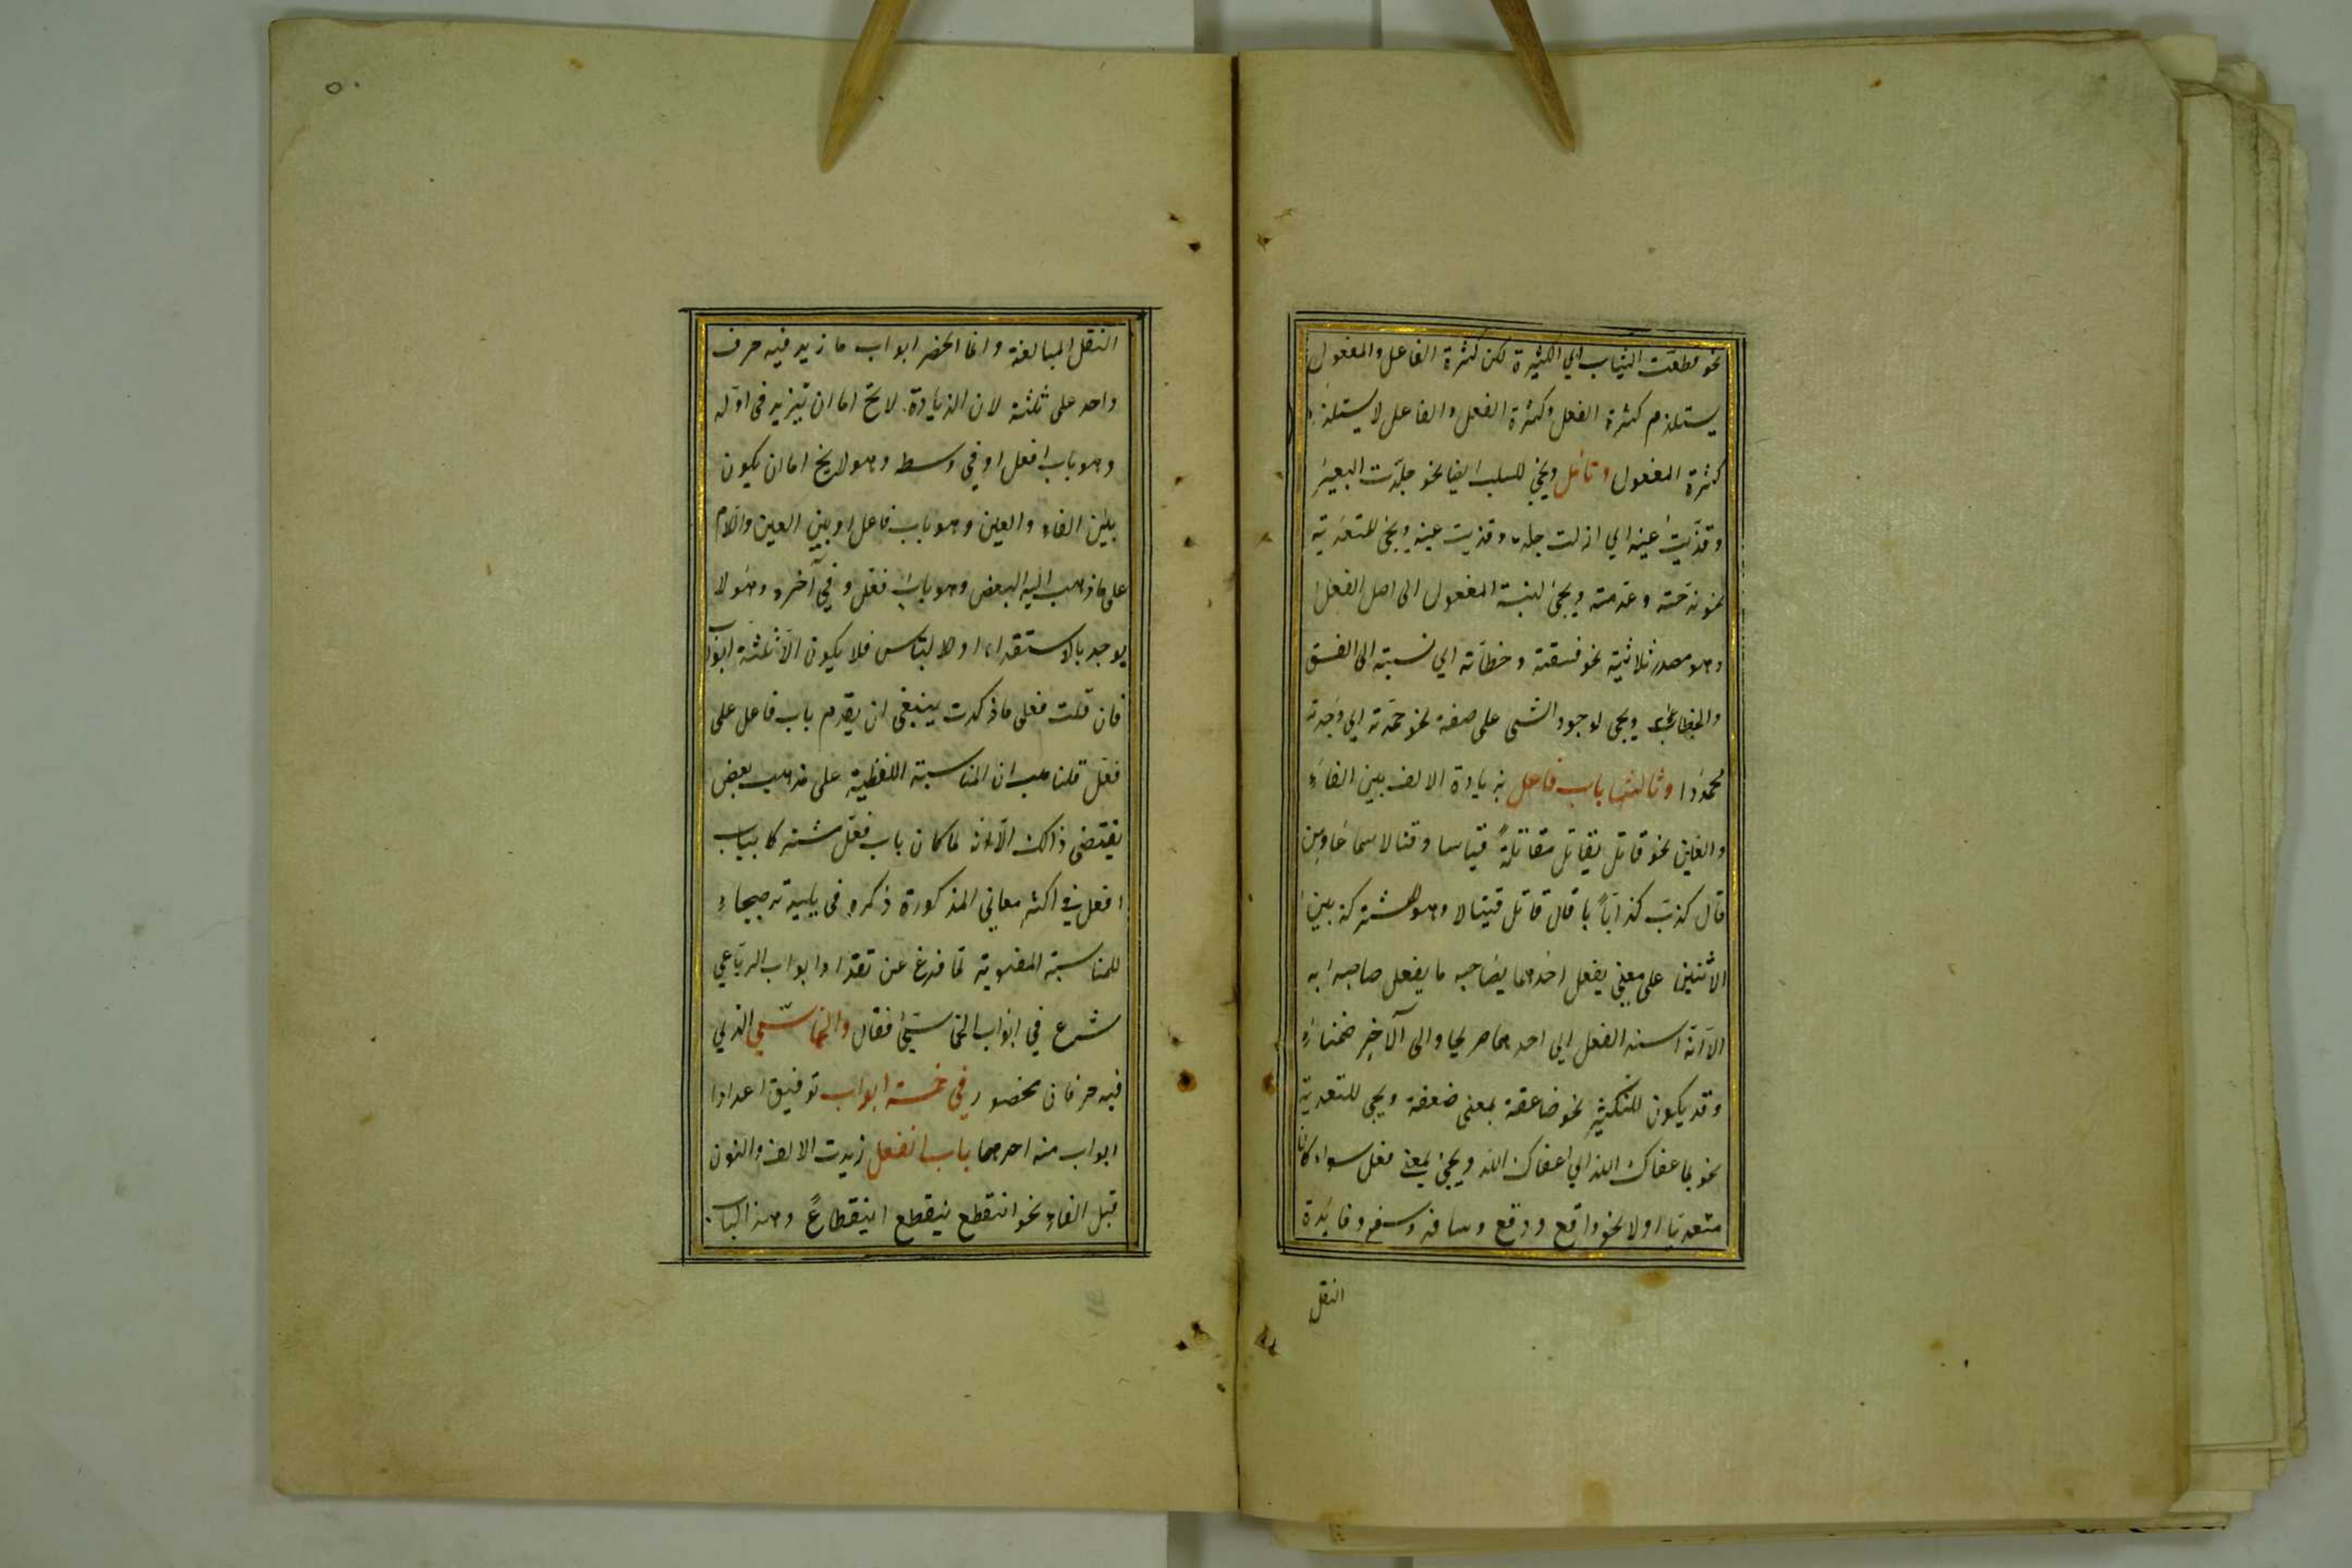 نحو قطعت الثياب اي الكثيرة لكن كثرة الفاعل والمفعول
يستلزم كثرة الفعل وكثرة الفعل والفاعل لا يستلزم
كثرة المفعول وتأمل ويجئ للسلب ايضا نحو جلدت البعير
وقذيت عينه اي ازلت جلده وقذيت عينه ويجئ للتعدية
نحو فرحته وقدمته ويجئ لنسبة المفعول الى اصل الفعل
وهو مصدر ثلاثية نحو فسقته وخطأته اي نسبته الى الفسق
والخطاء ويجى لوجود الشى على صفة نحو حمدته اي وجدته
محمودا وثالثها باب فاعل بزيادة الالف بين الفاء
والعين نحو قاتل يقاتل مقاتلة قياسا وقتالا سماعا ومن
قال كذب كذابا قال قاتل قيتالا وهو للمشتركة بين
الاثنين على معنى يفعل احدهما بصاحبه ما يفعل صاحبه به
الا انه اسند الفعل الى احدهما صريحا والى الآخر ضمنا
وقد يكون للتكثير نحو ضاعفته بمعنى ضعفه ويجى للتعدية
نحو عافاك الله اي اعفاك الله ويجئ بمعنى فعل سواء كان
متعديا اولا نحو واقع ووقع وسافر وسفر وفايدة
النقل
النقل المبالغة وانما انحصر ابواب ما زيد فيه حرف
واحد على ثلثة لان الزيادة لا يخ اما ان تزيد فى اوله
وهو باب افعل او في وسطه وهو لا يخ اما ان يكون
بين الفاء والعين وهو باب فاعل او بين العين واللام
على ما ذهب اليه البعض وهو باب فعل وفي آخره وهو لا
يوجد بالاستقراء او للالتباس فلا يكون الا ثلثة ابواب
فان قلت فعلى ما ذكرت ينبغى ان يقدم باب فاعل على
فعل قلنا هب ان المناسبة اللفظية على مذهب بعض
يقتضى ذالك الا انه لما كان باب فعل مشتركا بباب
افعل في اكثر معاني المذكورة ذكره فى يليه ترجيحا
للمناسبة المعنوية لما فرغ عن تعداد ابواب الرباعي
شرع في ابواب الخماسي فقال والخماسي الذي
فيه حرفان محصور فى خمسة ابواب توفيق اعدادا
ابواب منه احدهما باب انفعل زيدت الالف والنون
قبل الفاء نحو انقطع ينقطع انقطاعا وهذا الباب
٥٠